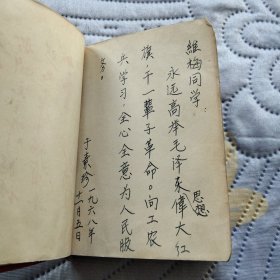 維梅同学:
永远高举毛泽东思想偉大红
旗,干一輩子革命。向工农
兵学习,全心全意为人民服
务。
于義珍
一九六八年
十一月五日